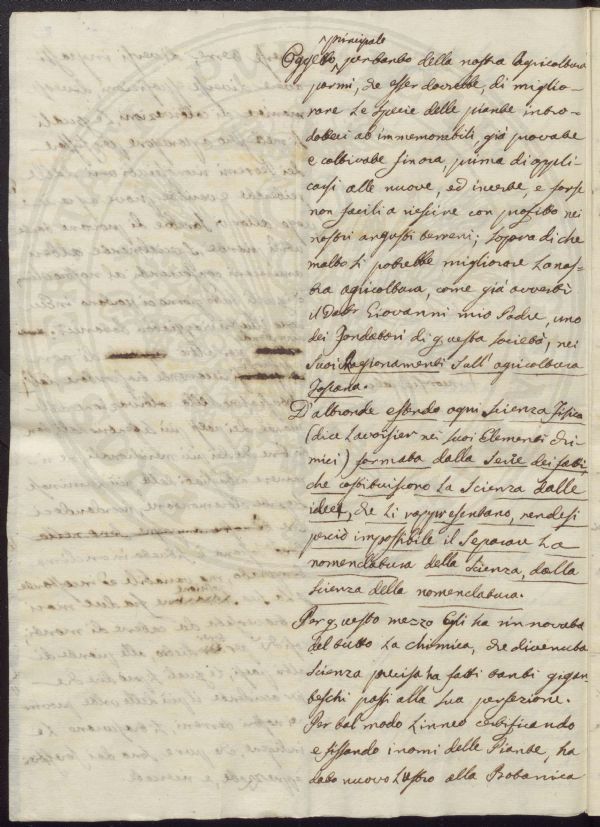 principale
Oggetto pertanto della nostra Agricoltura
parmi, che esser dovrebbe, di miglio-
rare le specie delle piante intro-
dotteci ab immemorabili, già provate
e coltivate finora, prima di appli-
carsi alle nuove, ed incerte, e forse
non facili a riescire con profitto nei
nostri angusti terreni; sopra di che
molto si potrebbe migliorare la nos-
tra agricoltura, come già avvertì
il Dottr Giovanni mio Padre, uno
dei Fondatori di questa società, nei
suoi Ragionamenti sull'agricoltura
Toscana.
D'altronde essendo ogni scienza fisica
(dice Lavoisier nei suoi Elementi chi-
mici) formata dalla serie dei fatti,
che costituiscono la scienza dalle
idee, che li rappresentano, rendesi
perciò impossibile il separare la
nomenclatura della scienza, dalla
scienza della nomenclatura.
Per questo mezzo Egli ha rinnovata
del tutto la chimica, che divenuta
scienza precisa ha fatti tanti gigan-
teschi passi alla sua perfezione.
Per tal modo Linneo rettificando
e fissando i nomi delle Piante, ha
dato nuovo lustro alla Botanica